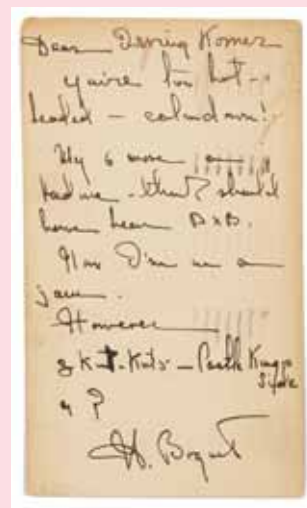 Dear Irving Komer
you're too hot-
headed — calm down!
My 6 move on
Had me - should
have been BxB.
Now I'm in a
jam.
However
8 Kt-Kt5 — Castle Kings
side
4 ?
H. Bogart